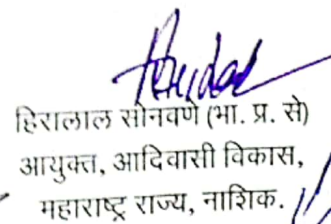 हिरालाल सोनवणे (भा. प्र. से)
आयुक्त, आदिवासी विकास,
महाराष्ट्र राज्य, नाशिक.